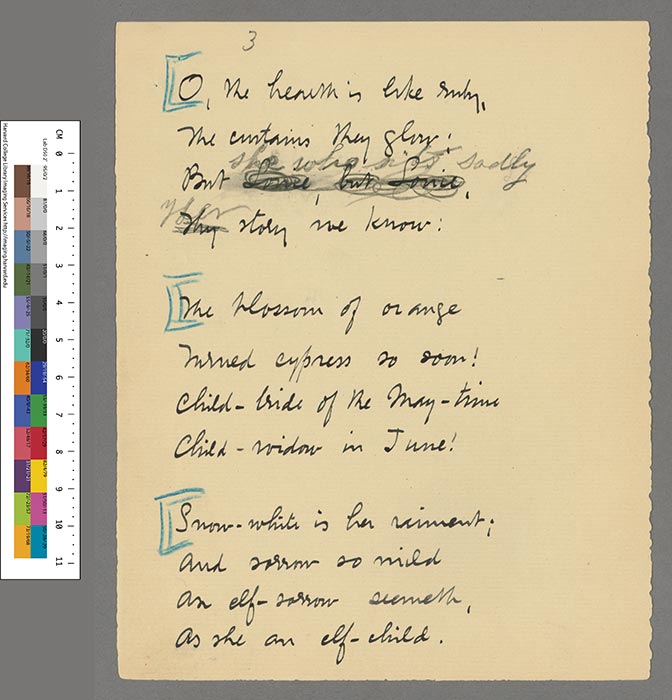 3
O, the hearth is like ruby,
The curtains they glow:
she who sits sadly
But Louie, but Louie,
Her
Thy story we know:
The blossom of orange
Turned cypress so soon!
Child-bride of the May-time
Child-widow in June!
Snow-white is her raiment;
And sorrow so mild
An elf-sorrow seemeth,
As she an elf-child.
CM 0 1 2 3 4 5 6 7 8 9 10 11
Harvard College Library Imaging Services